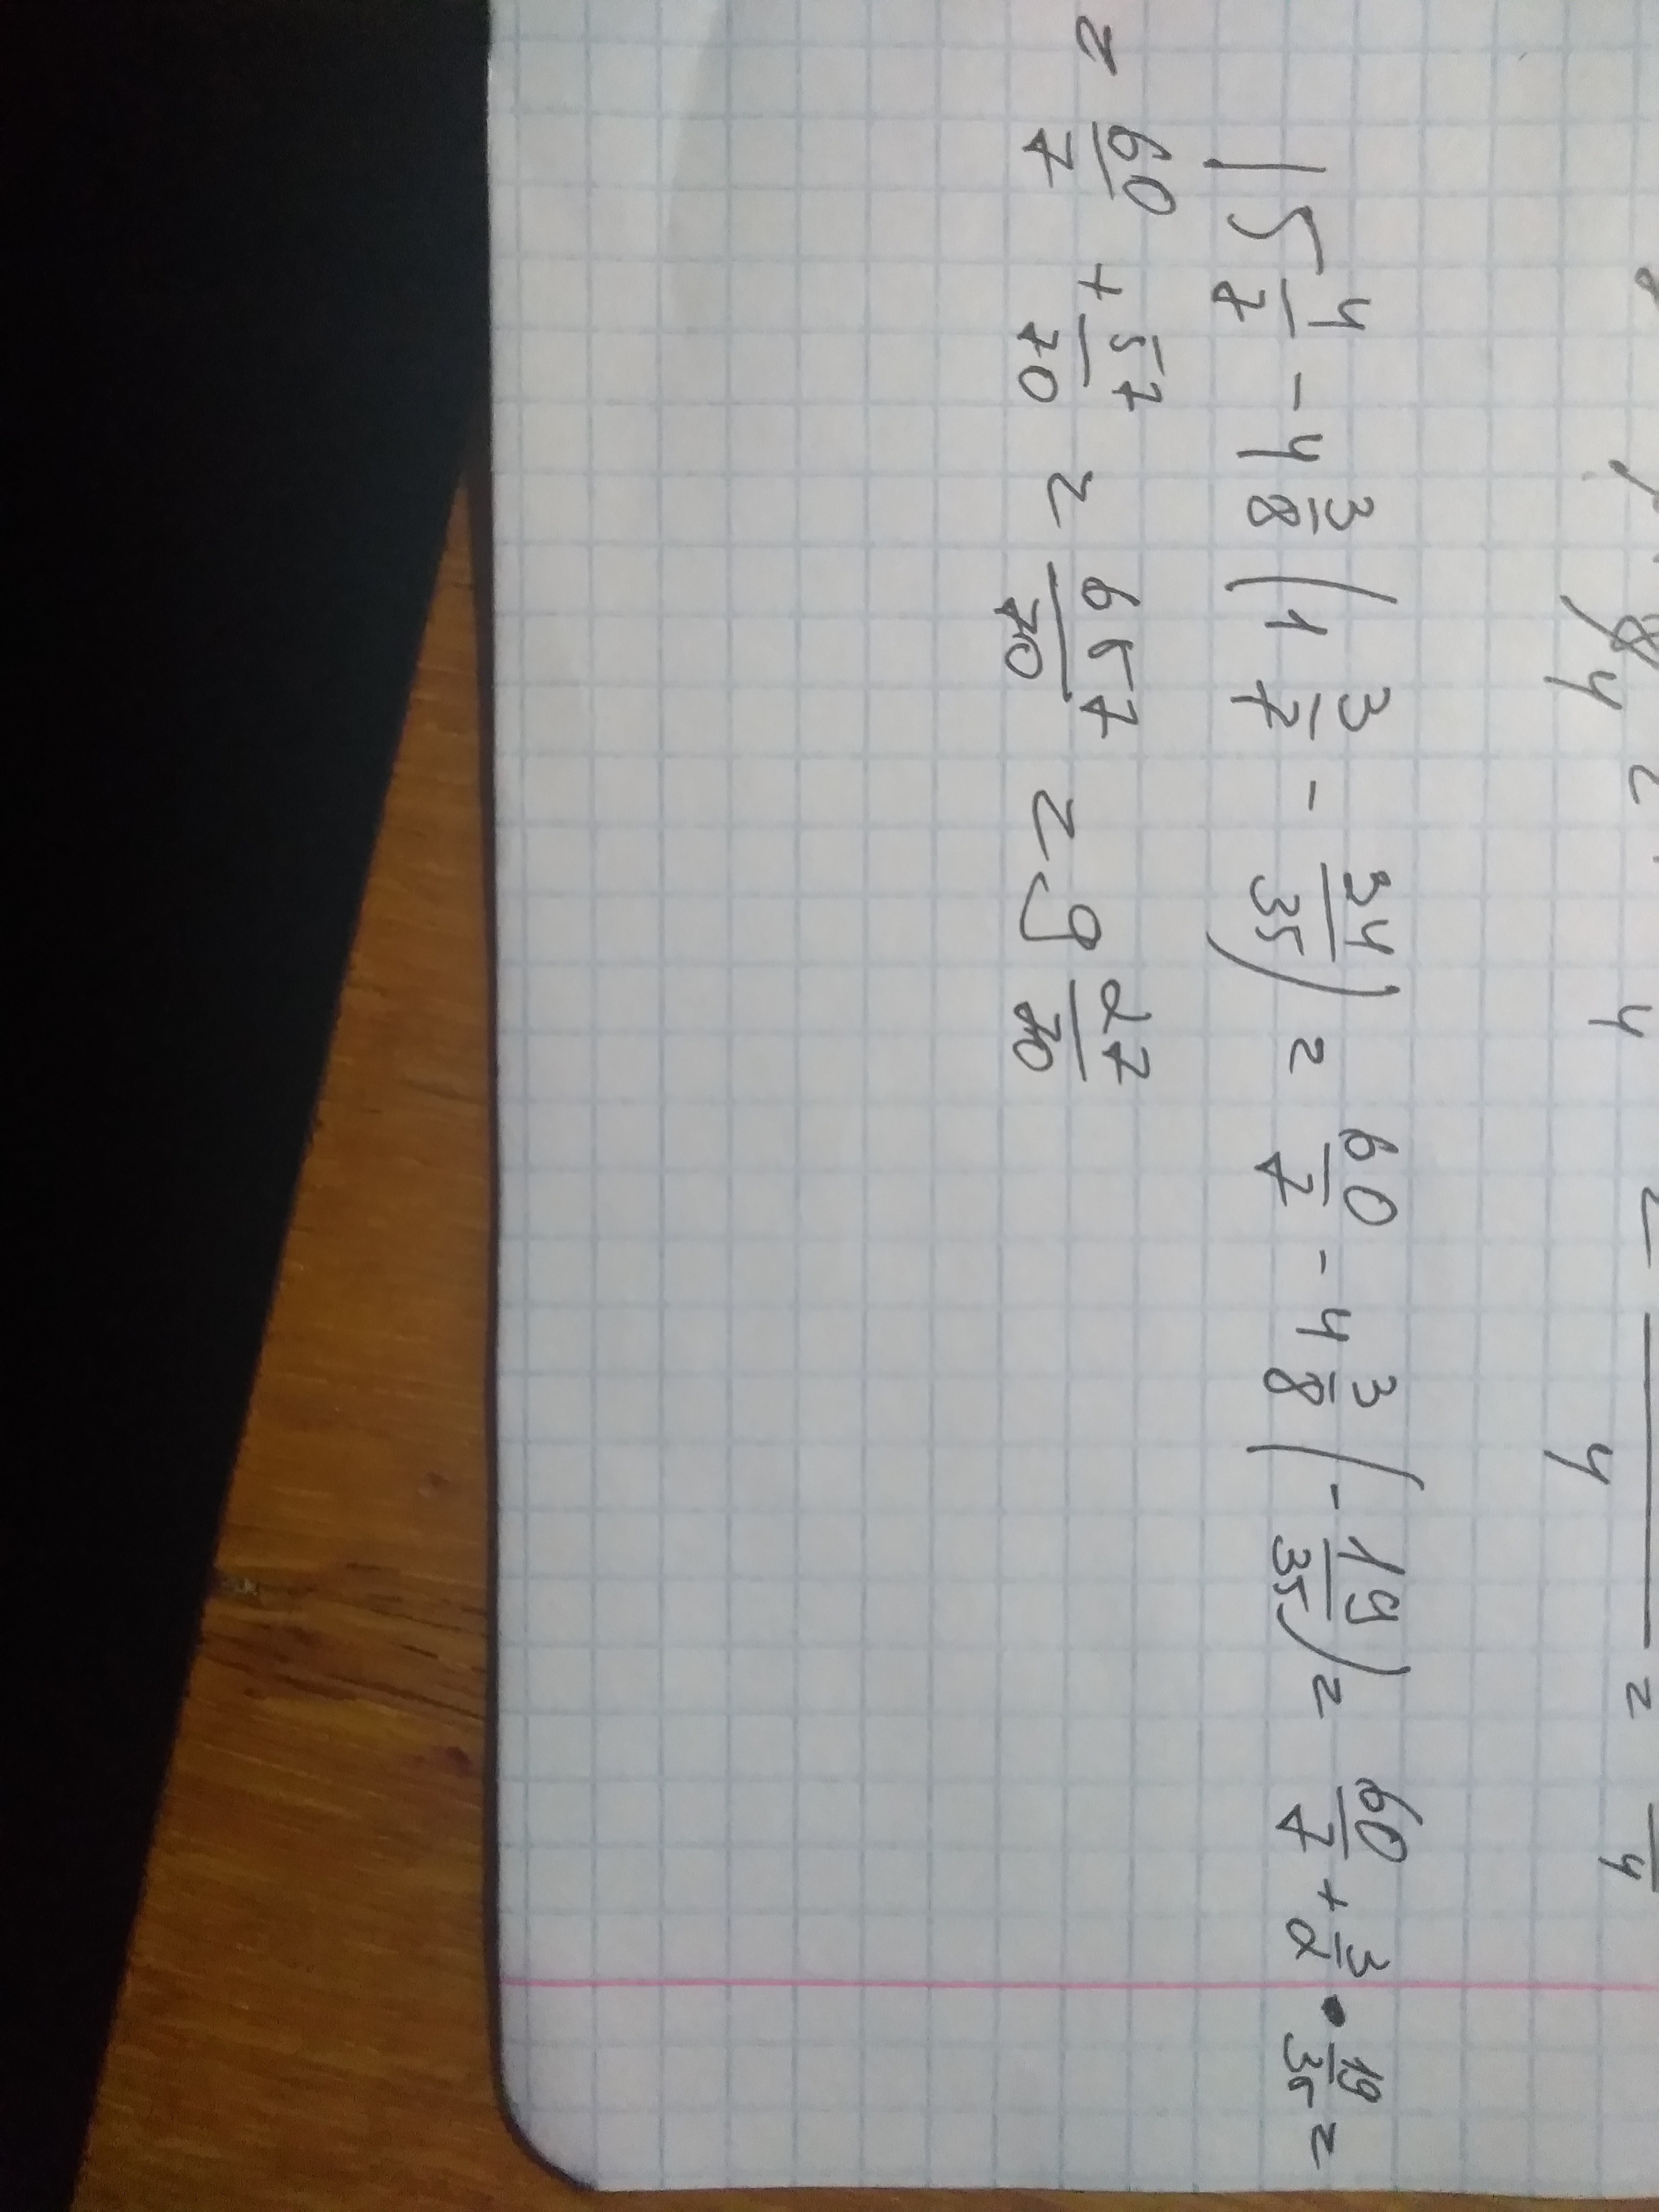 | 5 4/7 - 4 3/8 (1 3/7 - 34/35) = 60/7 - 4 3/8 (- 19/35) = 60/7 + 3/2 • 19/35 =
= 60/7 + 57/70 = 657/70 = 9 27/70